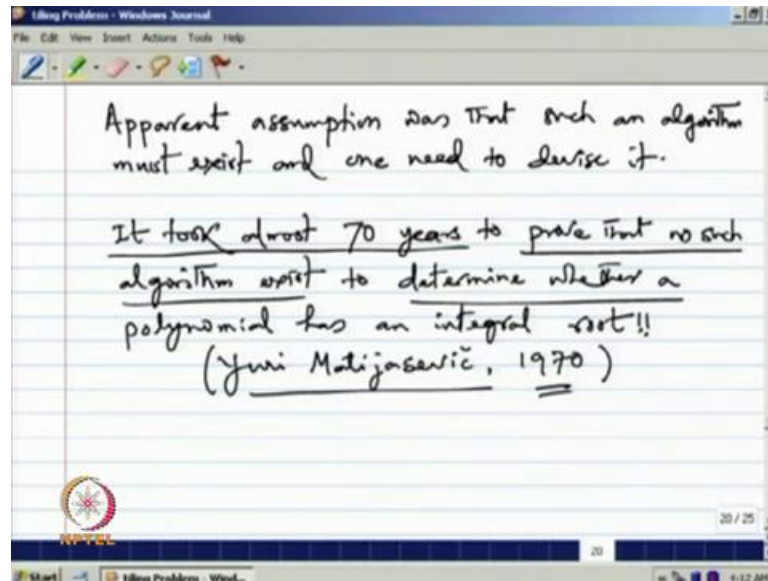 tiling Problem - Windows Journal
File Edit View Insert Actions Tools Help
Apparent assumption was that such an algorithm
must exist and one need to devise it.
It took almost 70 years to prove that no such
algorithm exist to determine whether a
polynomial has an integral root!!
(Yuri Matijasevič, 1970)
NPTEL
20 / 25
20
Start
tiling Problem - Wind...
6:12 AM